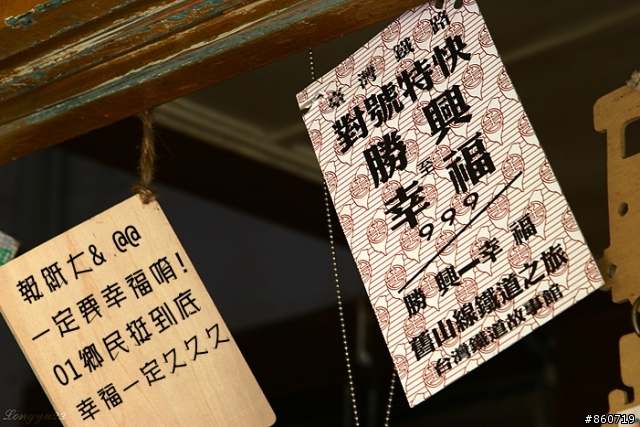 報紙大& @@
一定要幸福唷!
01鄉民挺到底
幸福一定久久久
臺灣鐵路
對號特快
勝興
至
幸福
999
勝興—幸福
舊山線鐵道之旅
台灣鐵道故事館
Longyu69
#860719